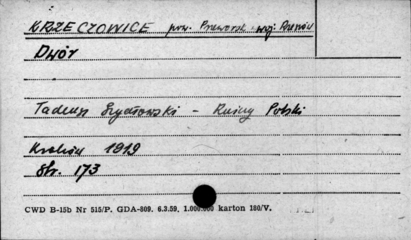 KRZECZOWICE pow. Przeworsk woj. Rzeszów
Dwór
Tadeusz Szydłowski - Ruiny Polski
Kraków 1919
Str. 173
CWD B-15b Nr 515/P. GDA-809. 6.3.59. 1.000.000 karton 180/V.